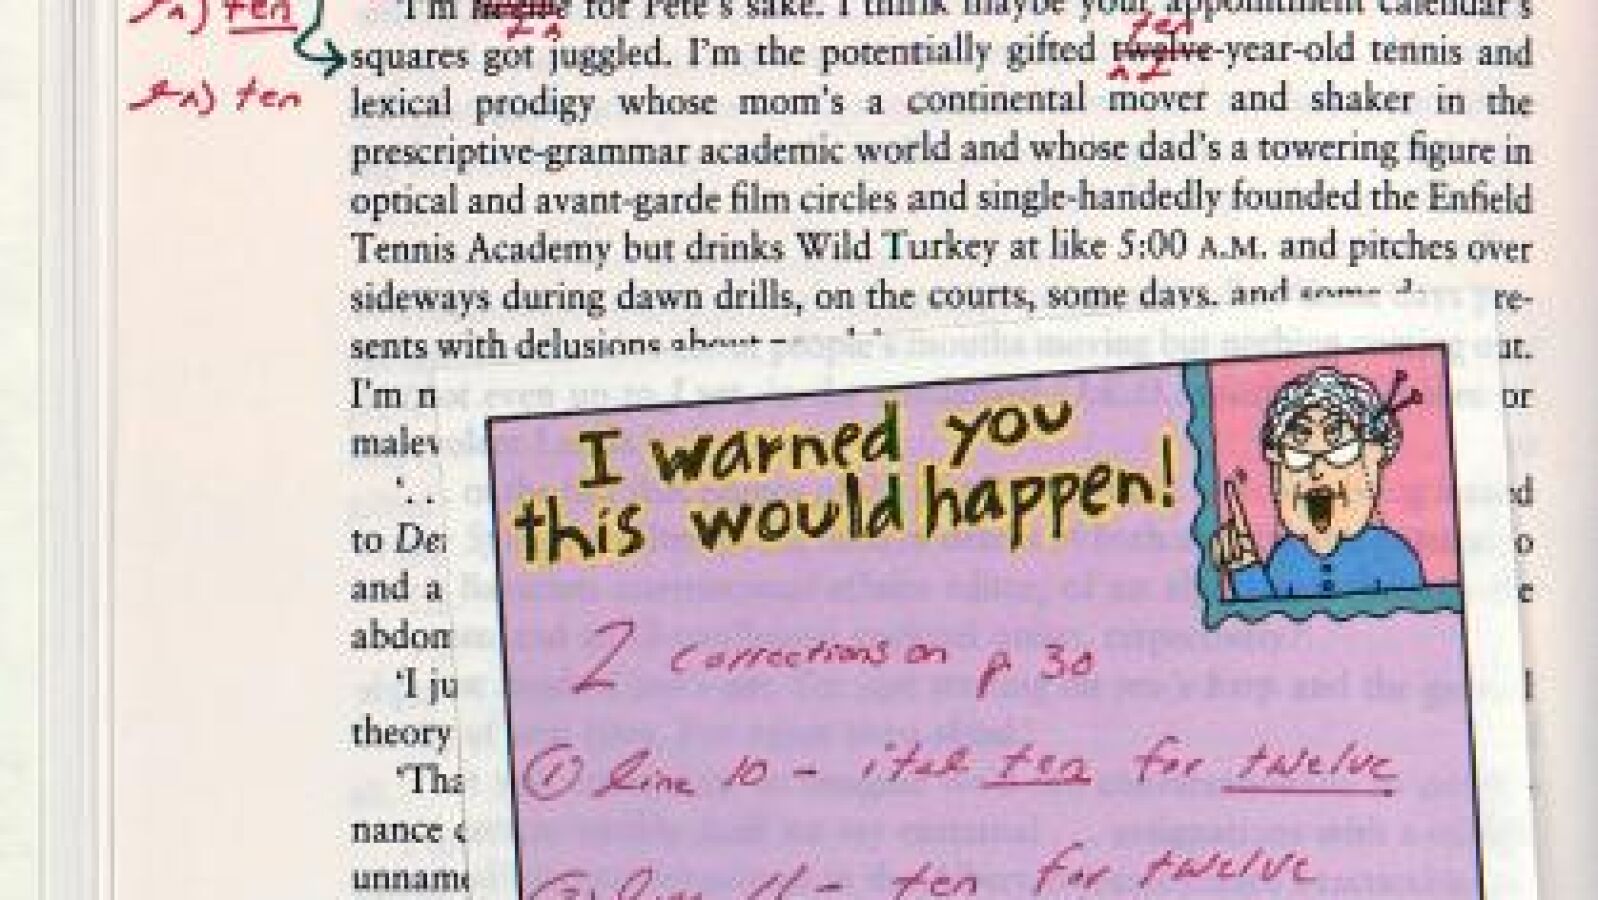 ten
'I'm twelve for Pete's sake. I think maybe your appointment calendar's
ten
squares got juggled. I'm the potentially gifted twelve-year-old tennis and
ten
lexical prodigy whose mom's a continental mover and shaker in the
prescriptive-grammar academic world and whose dad's a towering figure in
optical and avant-garde film circles and single-handedly founded the Enfield
Tennis Academy but drinks Wild Turkey at like 5:00 A.M. and pitches over
sideways during dawn drills, on the courts, some days, and some days pre-
sents with delusions about people's mouths moving but nothing
I'm n
malev
'. .
to De
and a
abdom
'I ju
theory
'Tha
nance
unname
I warned you
this would happen!
2 corrections on p 30
① line 10 - ital ten for twelve
② line 11 - ten for twelve